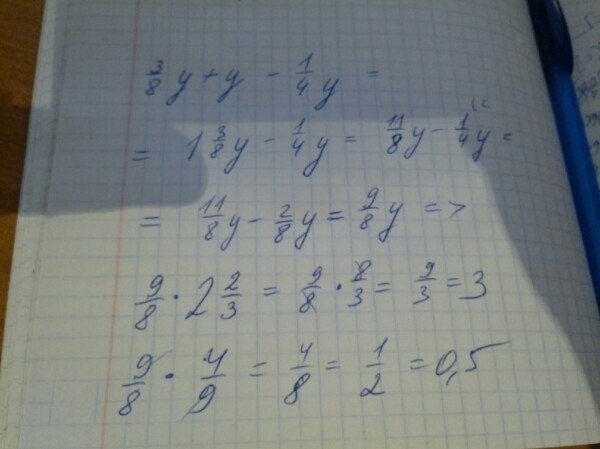 3/8 y + y - 1/4 y =
= 1 3/8 y - 1/4 y = 11/8 y - 1/4 y =
= 11/8 y - 2/8 y = 9/8 y =>
9/8 · 2 2/3 = 9/8 · 8/3 = 9/3 = 3
9/8 · 4/9 = 4/8 = 1/2 = 0,5